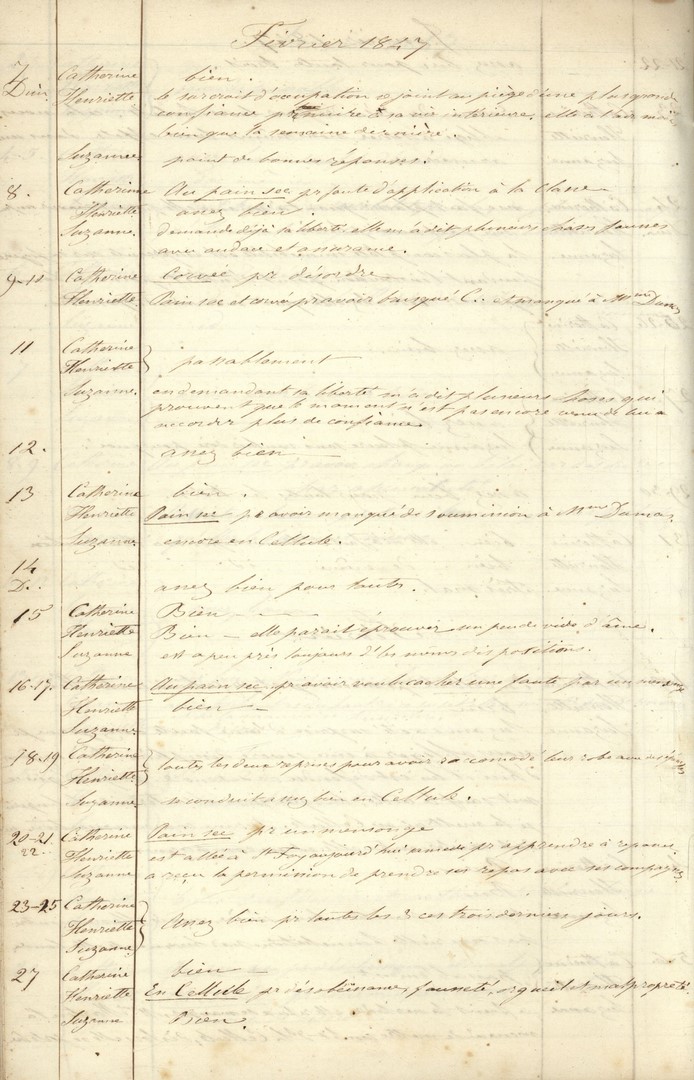 Février 1847
7 Dim. Catherine bien.
Henriette le surcroit d'occupation joint au piège d'une plus grande
confiance à sa vie intérieure, elle a l'air moins
bien que la semaine dernière.
Suzanne point de bonnes réponses.
8. Catherine Au pain sec pr faute d'application à la classe
Henriette assez bien.
Suzanne. demande déjà sa liberté. elle m'a dit plusieurs choses fausses
avec audace et assurance.
9-10 Catherine Corvée pr désordre
Henriette Pain sec et corvée pr avoir brusqué C. et manqué à Mme Dumas
11 Catherine
Henriette } passablement
Suzanne. en demandant sa liberté m'a dit plusieurs choses qui
prouvent que le moment n'est pas encore venu de lui
accorder plus de confiance
12. assez bien
13 Catherine bien.
Henriette Pain sec pr avoir manqué de soumission à Mme Dumas.
Suzanne encore en Cellule.
14
D. assez bien pour toutes.
15 Catherine Bien
Henriette Bien – elle parait éprouver un peu de vide d'âme.
Suzanne est a peu près toujours ds les mêmes dispositions.
16-17. Catherine Au pain sec pr avoir voulu cacher une faute par un mensonge
Henriette bien –
Suzanne
18-19 Catherine
Henriette } toutes les deux reprises pour avoir raccomodé leur robe avec
Suzanne se conduit assez bien en Cellule.
20-21 Catherine Pain sec pr un mensonge
22. Henriette est allée à St Foy aujourd'hui samedi pr apprendre à repasser
Suzanne a reçu la permission de prendre ses repas avec ses compagnes
23-25 Catherine
Henriette } Assez bien pr toutes les 3 ces trois derniers jours.
Suzanne
27 Catherine bien –
Henriette En Cellule pr désobéissance, fausseté, orgueil et malpropreté
Suzanne Bien.